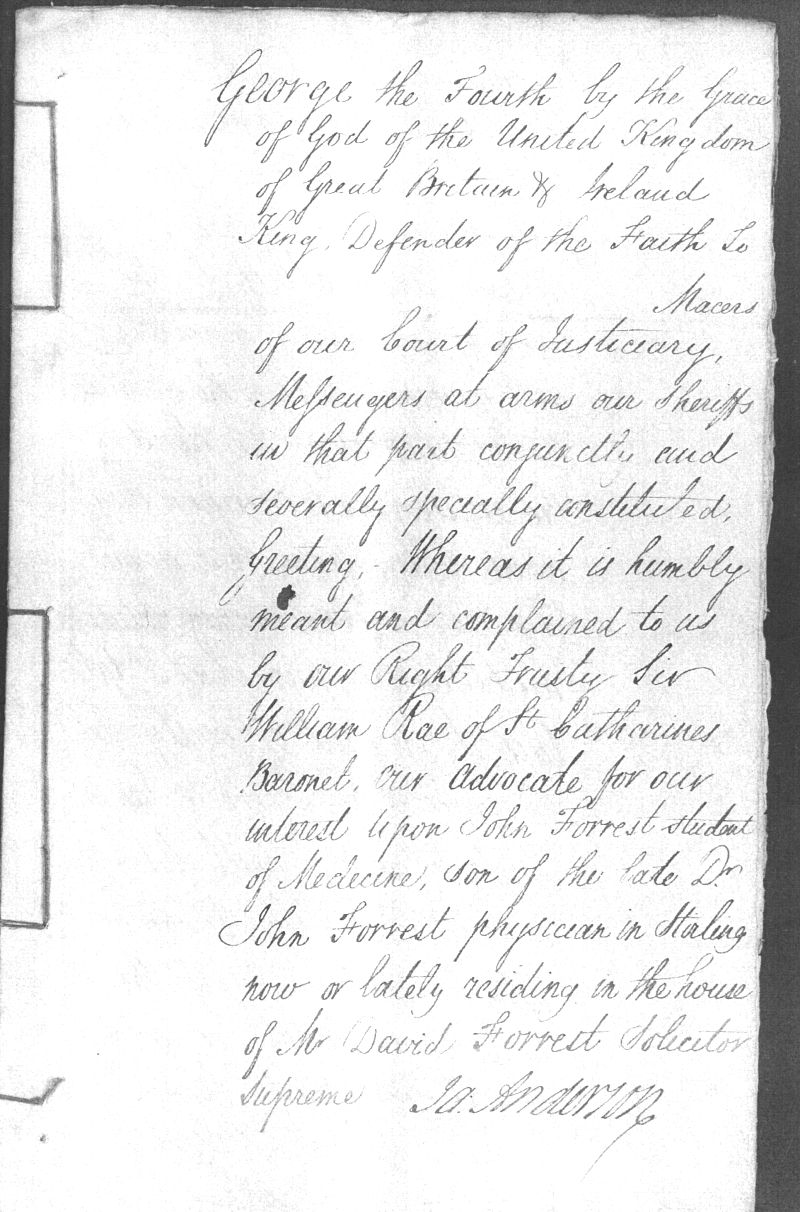 George the Fourth by the Grace
of God of the United Kingdom
of Great Britain & Ireland
King, Defender of the Faith To
Macers
of our Court of Justiciary,
Messengers at arms our Sheriffs
in that part conjunctly and
severally specially constituted,
Greeting, Whereas it is humbly
meant and complained to us
by our Right Trusty Sir
William Rae of St Catharines
Baronet, our Advocate for our
interest upon John Forrest student
of Medecine, son of the late Dr
John Forrest physician in Stirling
now or lately residing in the house
of Mr David Forrest Solicitor
Supreme Ja: Anderson